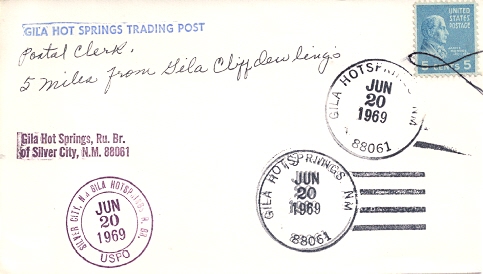 GILA HOT SPRINGS TRADING POST
Postal Clerk.
5 miles from Gila Cliffdewlings
UNITED STATES POSTAGE
5 CENTS 5
GILA HOTSPRINGS NM
JUN
20
1969
88061
Gila Hot Springs, Ru. Br.
of Silver City, N.M. 88061
GILA HOTSPRINGS NM
JUN
20
1969
88061
SILVER CITY, N.M. GILA HOTSPRING R. BR.
JUN
20
1969
USPO